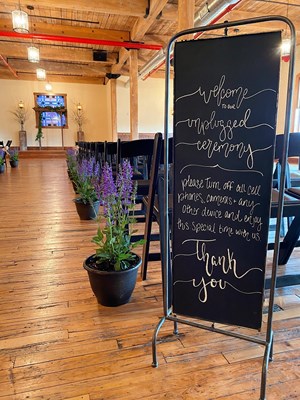 welcome
to our
unplugged
ceremony
please turn off all cell
phones, cameras + any
other device and enjoy
this special time with us
Thank
you